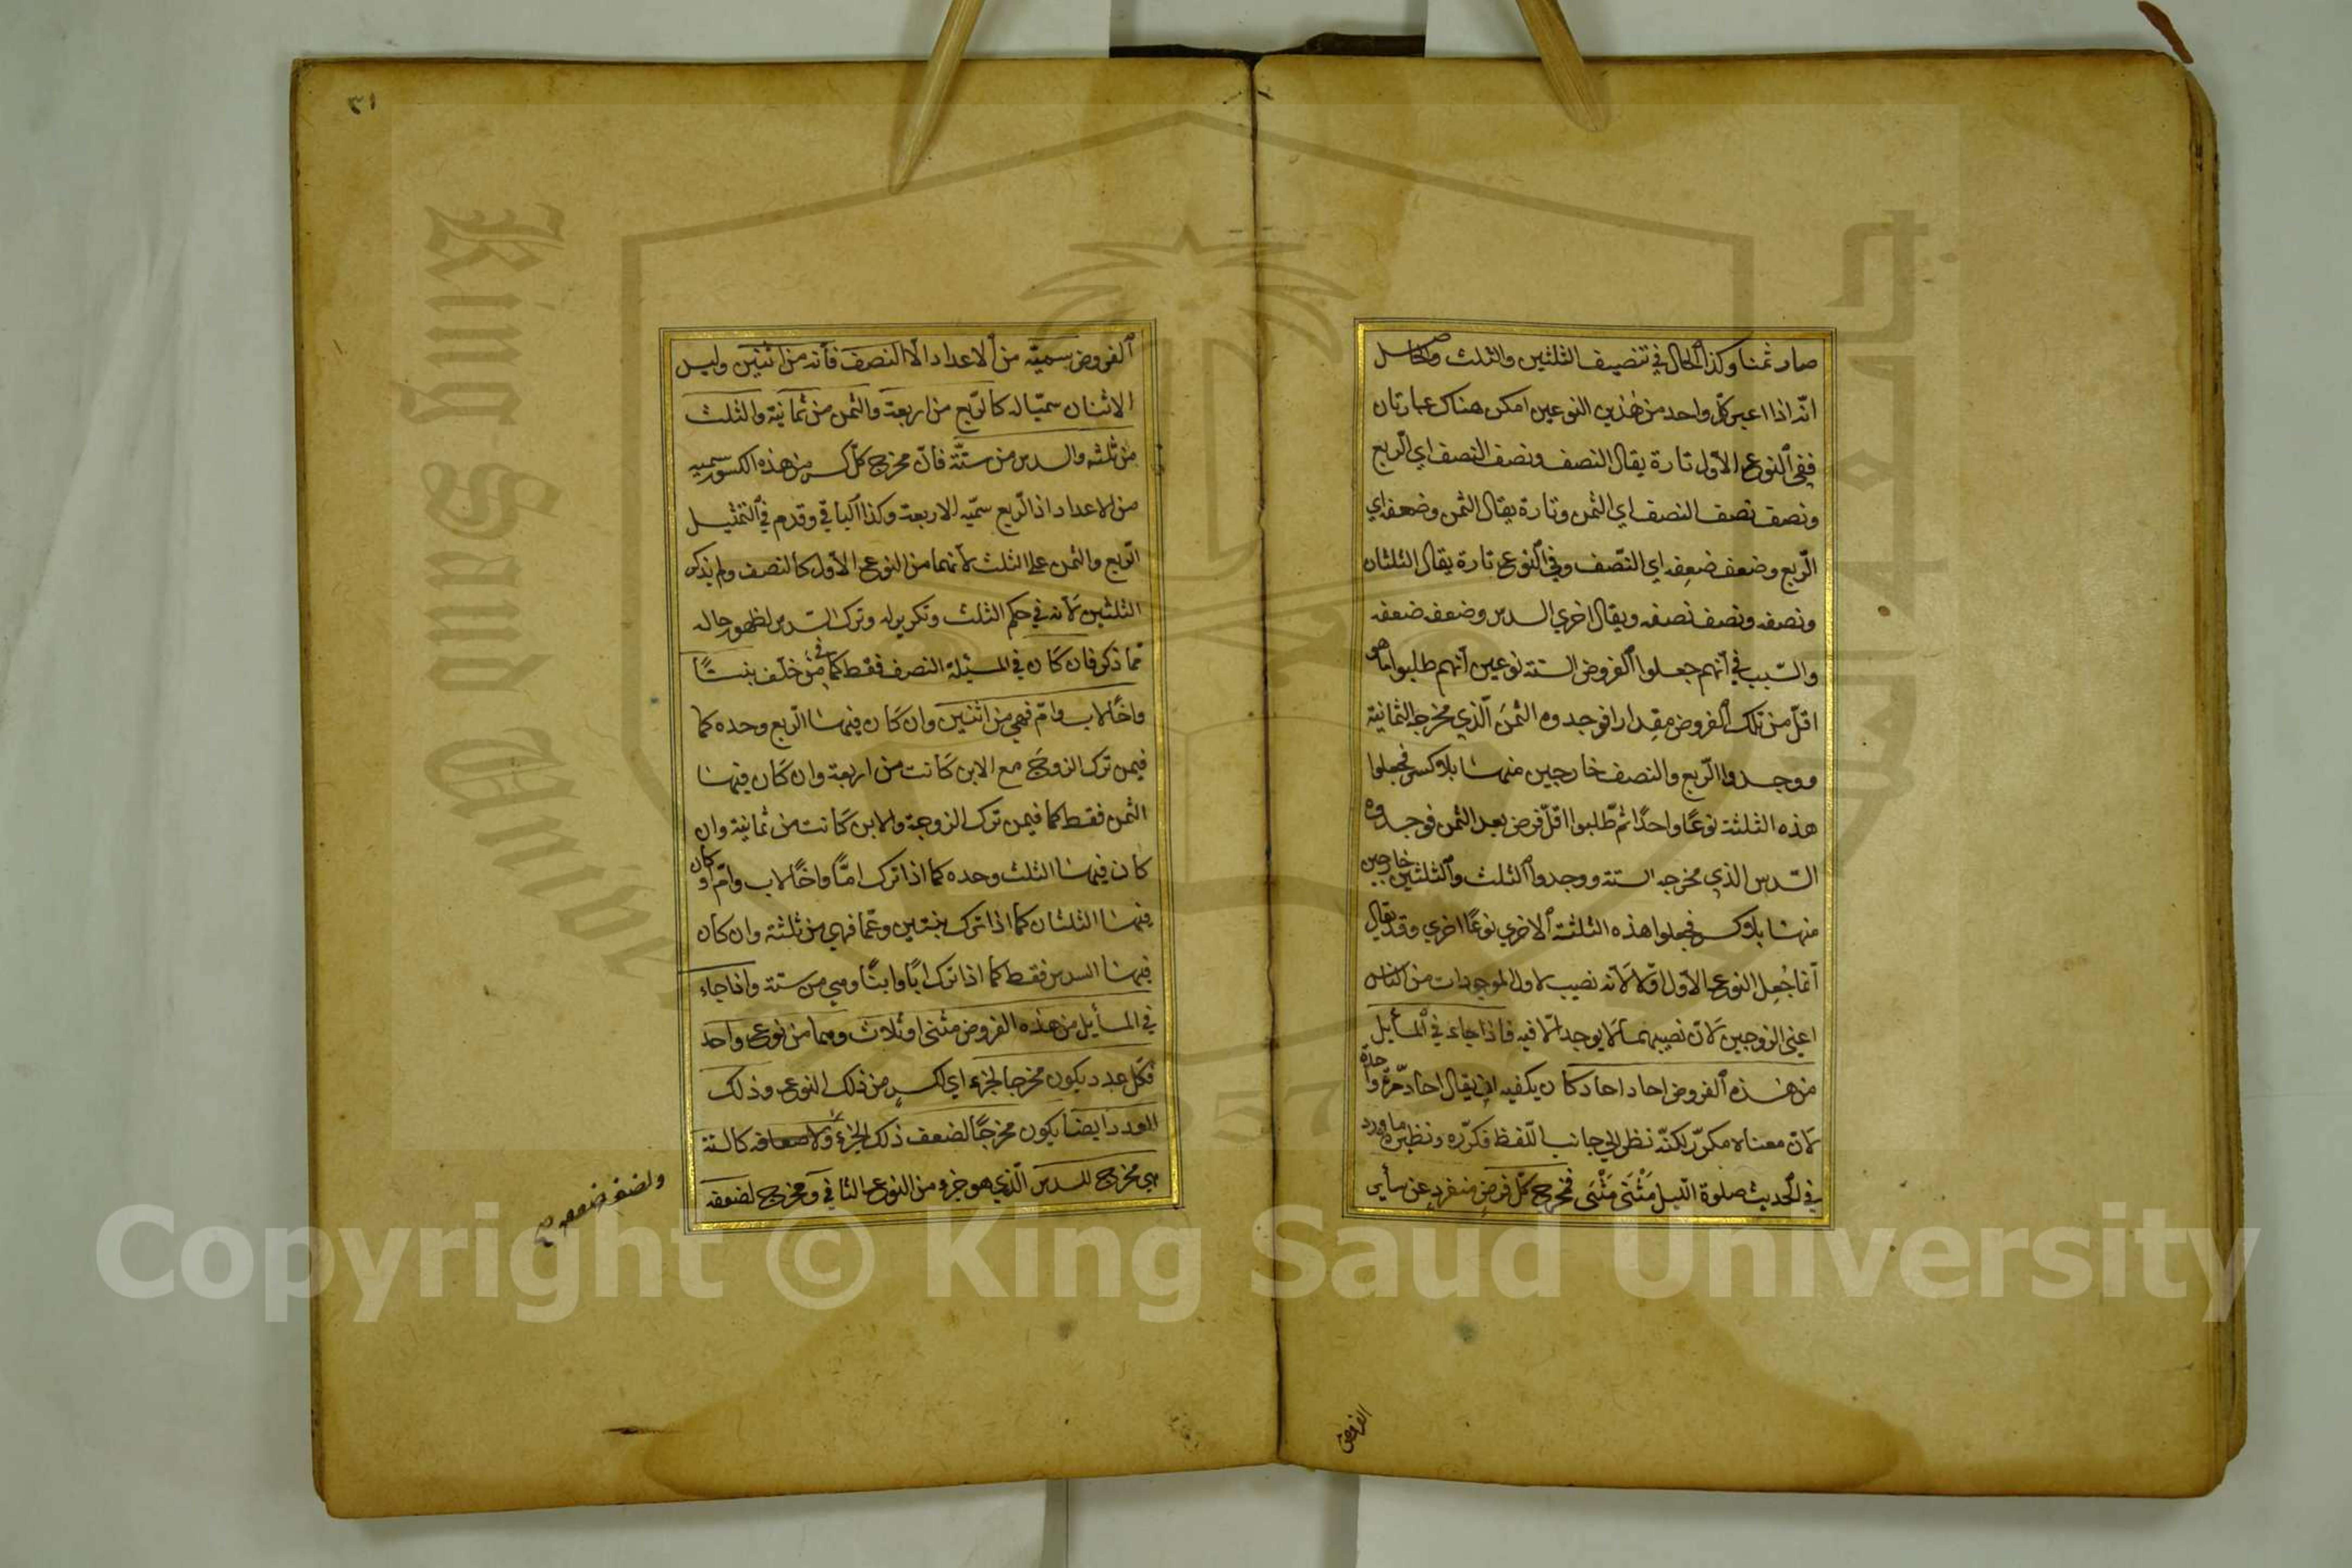 صار ثمنا وكذا الحال في تنصيف الثلثين والثلث والحاصل
انّه اذا اعبر كلّ واحد من هٰذين النوعين امكن هناك عبارتان
ففي النوع الاوّل تارة يقال النصف ونصف النصف اي الرّبع
ونصف نصف النصف اي الثمن وتارة يقال الثمن وضعفه اي
الرّبع وضعف ضعفه اي النّصف وفي النوع تارة يقال الثلثان
ونصفه ونصف نصفه ويقال اخري السدس وضعفه ضعفه
والسّبب في انّهم جعلوا الفروض الستة نوعين انّهم طلبوا ما هو
اقلّ من تلك الفروض مقدارا فوجدوه الثمن الّذي مخرجه الثمانية
ووجدوا الرّبع والنصف خارجين منها بلا كسر فجعلوا
هذه الثلثة نوعًا واحدًا ثم طلبوا اقلّ فرض بعد الثمن فوجدوه
السّدس الذي مخرجه الستة ووجدوا الثلث والثلثين خارجين
منها بلا كسر فجعلوا هذه الثلثة الاخري نوعًا اخري وقد يقال
انّما جُعل النوع الاول اوّلا لانّه نصيب لاول الموجودات من الناس
اعني الزوجين لانّ نصيبهما لا يوجد الّا فيه فاذا جاء في المسأيل
من هذه الفروض احاد احاد كان يكفيه ان يقال احاد مرّة واحدة
لانّ معناه مكرّر لكنّه نظر الي جانب اللّفظ فكرّره ونظيره ما ورد
في الحديث صلوة اللّيل مَثْنَى مَثْنَى فمخرج كلّ فرض منفرد عن سأير
الفروض
٣١
الفروض سميّه من الاعداد الّا النصف فانّه من اثنين وليس
الاثنان سميّا له كالرّبع من اربعة والثمن من ثمانية والثلث
من ثلثه والسدس من ستّة فانّ مخرج كلّ كسر من هذه الكسور سميه
من الاعداد اذ الرّبع سميّه الاربعة وكذا الباقي وقدم في التمثيل
الرّبع والثمن على الثلث لانّهما من النوع الاول كالنصف ولم يذكر
الثلثين لانّه في حكم الثلث وتكرير له وترك السّدس لظهور حاله
ممّا ذكر فان كان في المسئلة النصف فقط كما في من خلّف بنتًا
واخًا لاب وامّ فهي من اثنين وان كان فيها الرّبع وحده كما
فيمن ترك الزوج مع الابن كانت من اربعة وان كان فيها
الثمن فقط كما فيمن ترك الزوجة والابن كانت من ثمانية وان
كان فيها الثلث وحده كما اذا ترك امًّا واخًا لاب وامّ او كان
فيها الثلثان كما اذا ترك بنتين وعمّا فهي من ثلثة وان كان
فيها السدس فقط كما اذا ترك ابًا وابنًا وهي من ستة واذا جاء
في المسأيل من هذه الفروض مثنى او ثلاث وهما من نوع واحد
فكل عدد يكون مخرجا لجزء اي لكسر من ذلك النوع وذلك
العدد ايضا يكون مخرجًا لضعف ذلك الجزء ولاضعافه كالستة
هي مخرج للسدس الّذي هو جزء من النوع الثاني ومخرج لضعفه
ولضعف ضعفه